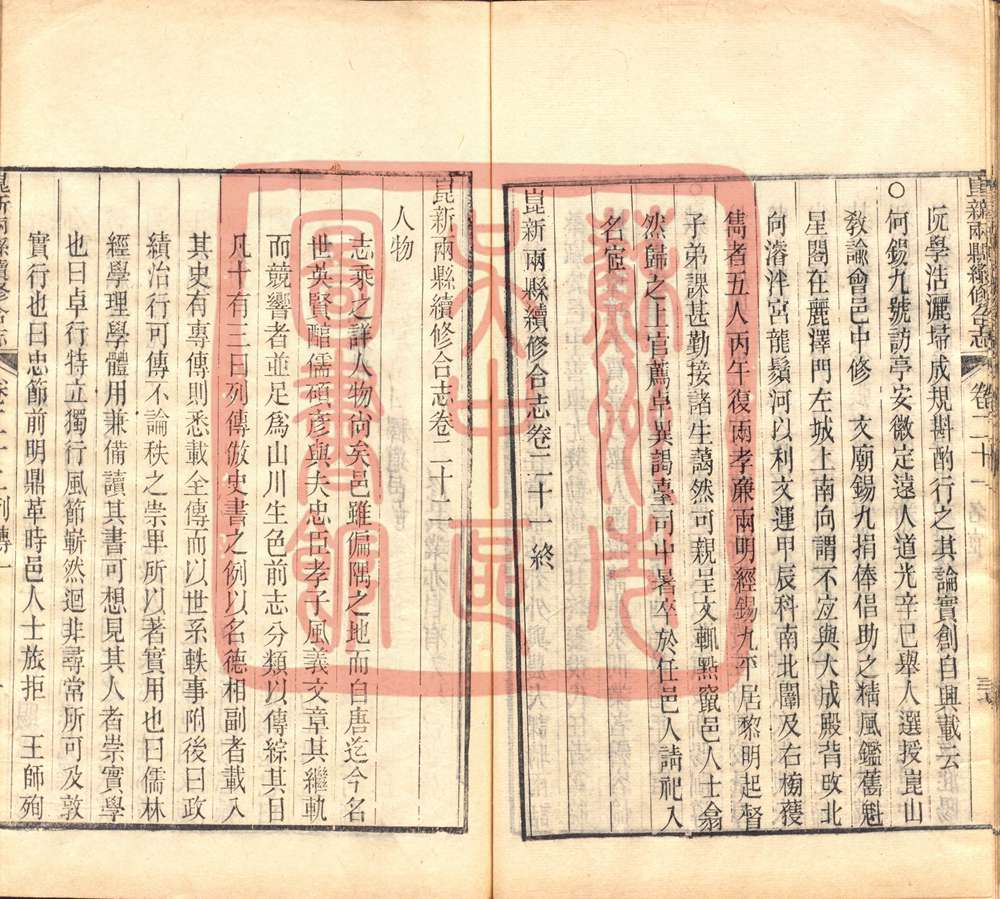 崑新兩縣續修合志 卷二十一
阮學浩灑埽成規斟酌行之其論實創自興載云
○何錫九號訪亭安徽定遠人道光辛巳舉人選授崑山
教諭會邑中修 文廟錫九捐俸倡助之精風鑑舊魁
星閣在麗澤門左城上南向謂不宜與大成殿背改北
向濬泮宮龍鬚河以利文運甲辰科南北闈及右榜獲
雋者五人丙午復兩孝亷兩明經錫九平居黎明起督
子弟課甚勤接諸生藹然可親呈文輒㸃竄邑人士翕
然歸之上官薦卓異謁臺司中暑卒於任邑人請祀入
名宦
崑新兩縣續修合志卷二十一終
崑新兩縣續修合志卷二十二
人物
志乘之詳人物尚矣邑雖偏隅之地而自唐迄今名
世英賢醇儒碩彥與夫忠臣孝子風義文章其繼軌
而競響者並足爲山川生色前志分類以傳綜其目
凡十有三曰列傳倣史書之例以名德相副者載入
其史有專傳則悉載全傳而以世系軼事附後曰政
績治行可傳不論秩之崇卑所以著實用也曰儒林
經學理學體用兼備讀其書可想見其人者崇實學
也曰卓行特立獨行風節嶄然迥非尋常所可及敦
實行也曰忠節前明鼎革時邑人士旅拒 王師殉
崑新兩縣續修合志 卷二十二 列傳一
蘇州市
吳中區
圖書館